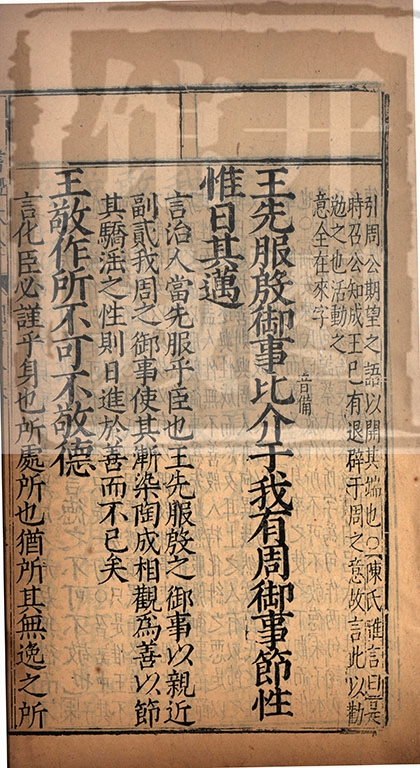 引周公期望之語以開其端也○陳氏雅言曰是
時召公知成王已有退辟于周之意故言此以勸
勉之也活動之
意全在來字
王先服殷御事比介于我有周御事節性
音備
惟日其邁
言治人當先服乎臣也王先服殷之御事以親近
副貳我周之御事使其漸染陶成相觀為善以節
其驕淫之性則日進於善而不已矣
王敬作所不可不敬德
言化臣必謹乎身也所處所也猶所其無逸之所